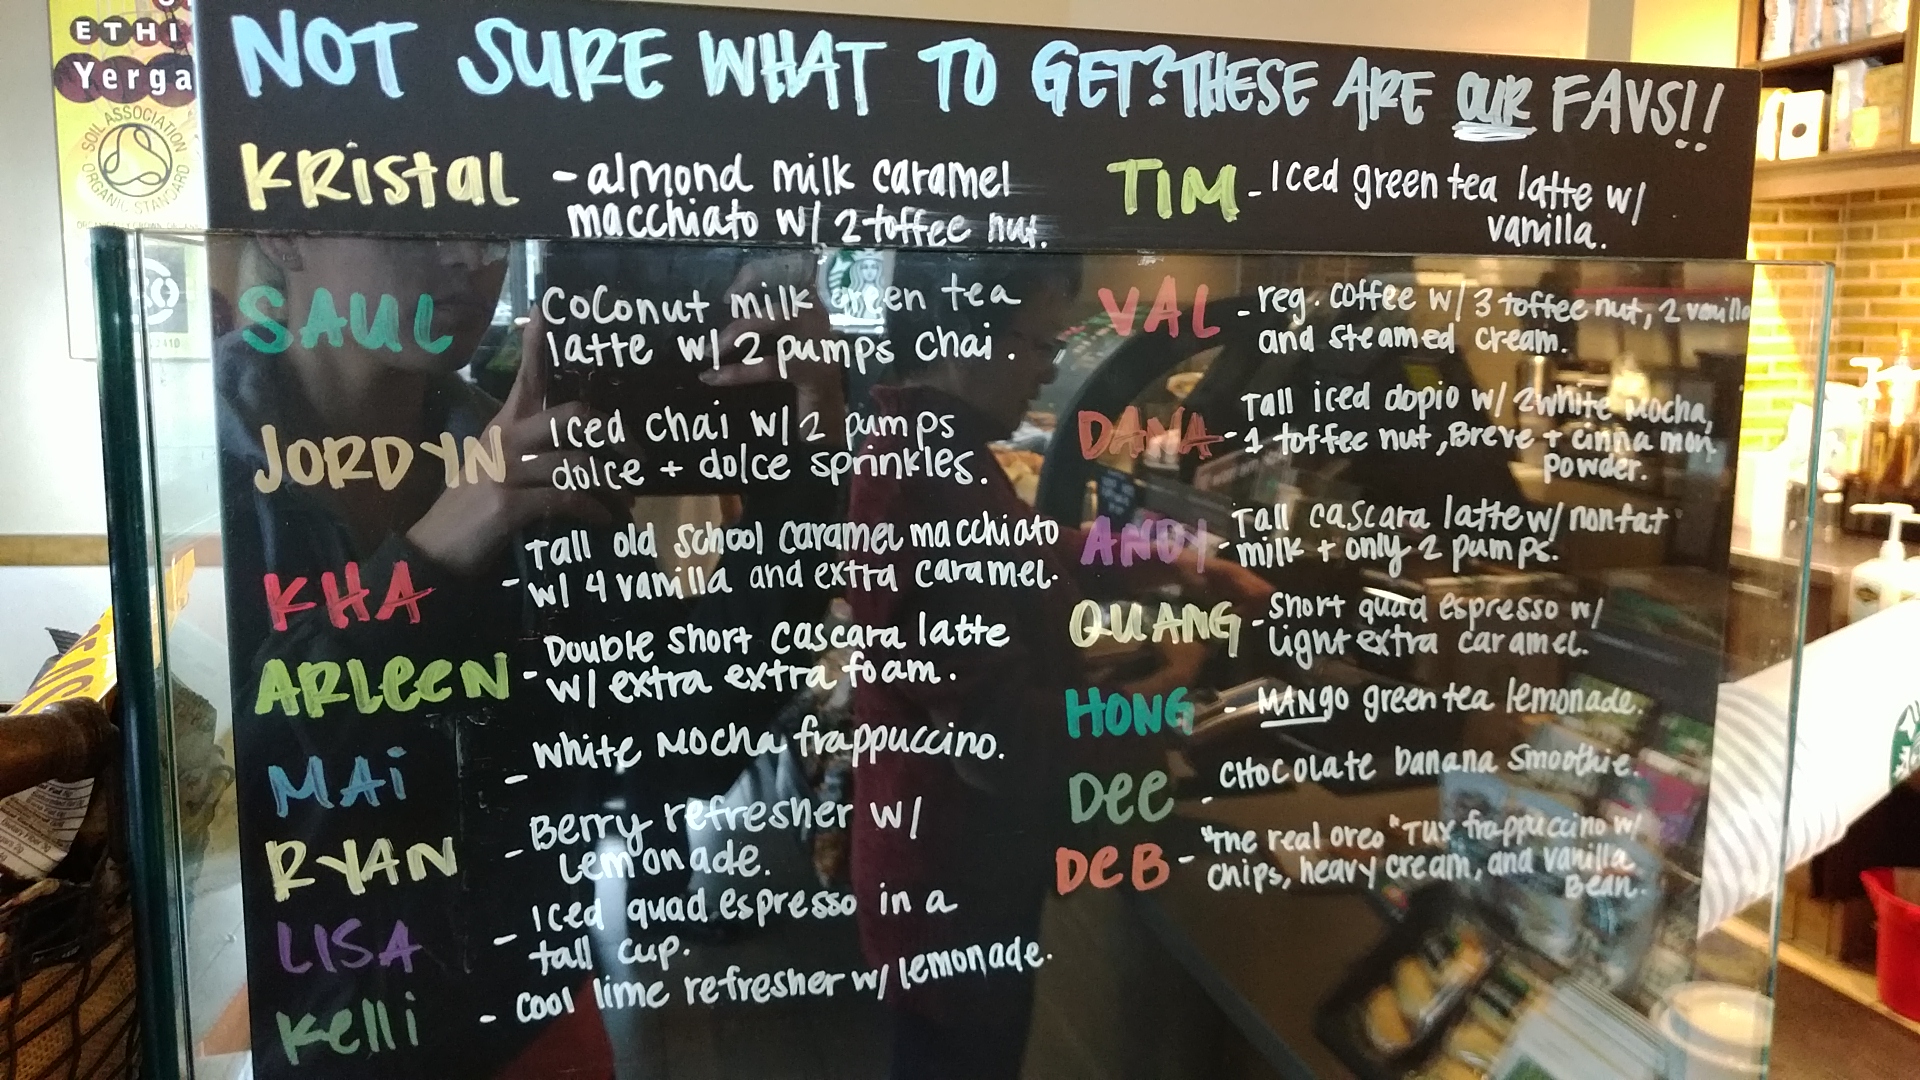 ETHI
Yerga
SOIL ASSOCIATION
ORGANIC STANDARD
NOT SURE WHAT TO GET? THESE ARE OUR FAVS!!
KRistal - almond milk caramel
macchiato w/ 2 toffee nut.
SAUL - Coconut milk green tea
latte w/ 2 pumps chai.
JORDYN - Iced chai w/ 2 pumps
dolce + dolce sprinkles.
KHA - Tall old school caramel macchiato
w/ 4 vanilla and extra caramel.
ARLeeN - Double short cascara latte
w/ extra extra foam.
MAi - White Mocha frappuccino.
RYAN - Berry refresher w/
Lemonade.
LISA - Iced quad espresso in a
tall cup.
Kelli - Cool lime refresher w/ lemonade.
TIM - Iced green tea latte w/
vanilla.
VAL - reg. coffee w/ 3 toffee nut, 2 vanilla
and steamed cream.
DANA - Tall iced dopio w/ 2 white mocha,
1 toffee nut, Breve + cinnamon
powder.
ANDY - Tall cascara latte w/ nonfat
milk + only 2 pumps.
QUANG - Short quad espresso w/
light extra caramel.
HONG - MANgo green tea lemonade.
DEE - CHocolate banana smoothie.
DeB - "The real oreo" TUX frappuccino w/
chips, heavy cream, and vanilla
Bean.